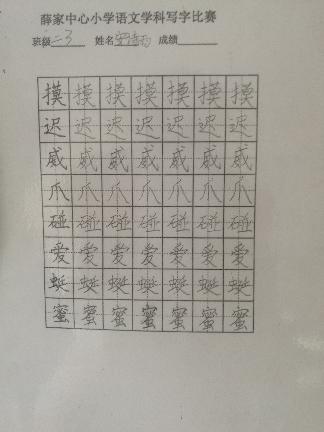 薛家中心小学语文学科写字比赛
班级 二3 姓名 成绩
摸 摸 摸 摸 摸 摸 摸
迟 迟 迟 迟 迟 迟 迟
威 威 威 威 威 威 威
爪 爪 爪 爪 爪 爪 爪
碰 碰 碰 碰 碰 碰 碰
爱 爱 爱 爱 爱 爱 爱
蜓 蜓 蜓 蜓 蜓 蜓 蜓
蜜 蜜 蜜 蜜 蜜 蜜 蜜